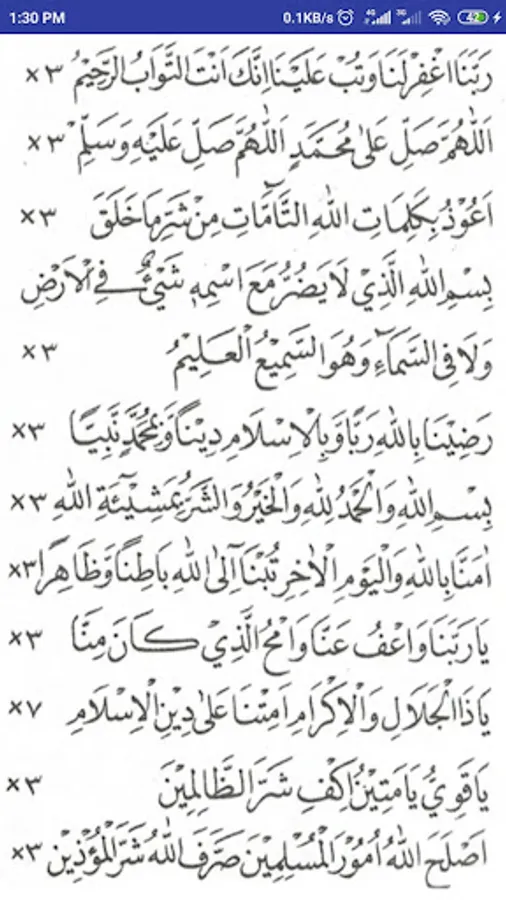 1:30 PM 0.1KB/s 4G 3G 42
رَبَّنَا اغْفِرْ لَنَا وَتُبْ عَلَيْنَا اِنَّكَ اَنْتَ التَّوَّابُ الرَّحِيْمُ ×٣
اَللّٰهُمَّ صَلِّ عَلٰى مُحَمَّدٍ اَللّٰهُمَّ صَلِّ عَلَيْهِ وَسَلِّمْ ×٣
اَعُوْذُ بِكَلِمَاتِ اللّٰهِ التَّآمَّاتِ مِنْ شَرِّ مَا خَلَقَ ×٣
بِسْمِ اللّٰهِ الَّذِيْ لَا يَضُرُّ مَعَ اسْمِهٖ شَيْئٌ فِى الْاَرْضِ
وَلَا فِى السَّمَآءِ وَهُوَ السَّمِيْعُ الْعَلِيْمُ ×٣
رَضِيْنَا بِاللّٰهِ رَبًّا وَبِالْاِسْلَامِ دِيْنًا وَّبِمُحَمَّدٍ نَّبِيًّا ×٣
بِسْمِ اللّٰهِ وَالْحَمْدُ لِلّٰهِ وَالْخَيْرُ وَالشَّرُّ بِمَشِيْئَةِ اللّٰهِ ×٣
اٰمَنَّا بِاللّٰهِ وَالْيَوْمِ الْاٰخِرِ تُبْنَا اِلَى اللّٰهِ بَاطِنًا وَّظَاهِرًا ×٣
يَا رَبَّنَا وَاعْفُ عَنَّا وَامْحُ الَّذِيْ كَانَ مِنَّا ×٣
يَا ذَا الْجَلَالِ وَالْاِكْرَامِ اَمِتْنَا عَلٰى دِيْنِ الْاِسْلَامِ ×٧
يَا قَوِيُّ يَا مَتِيْنُ اِكْفِ شَرَّ الظَّالِمِيْنَ ×٣
اَصْلَحَ اللّٰهُ اُمُوْرَ الْمُسْلِمِيْنَ صَرَّفَ اللّٰهُ شَرَّ الْمُؤْذِيْنَ ×٣